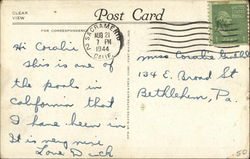 CLEAR VIEW
Post Card
FOR CORRESPONDENCE
SACRAMENTO
2
AUG 21
7 PM
1944
CALIF.
Hi Coralie
this is one of
the pools in
California that
I have been in
It is very nice
Love Dick
Miss Coralie
134 E. Broad St
Bethlehem, Pa.